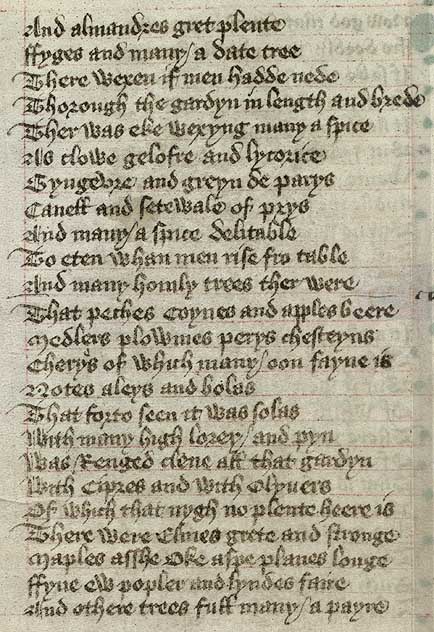 And almandres gret plente
ffyges and many / a date tree
There wexen if men hadde nede
Thorough the gardyn in length and brede
Ther was eke wexyng many a spice
As clowe gelofre and lycorice
Gyngevre and greyn de parys
Canell and setewale of prys
And many / a spice delitable
To eten whan men rise fro table
And many homly trees ther were
That peches coynes and apples beere
Medlers plowmes perys chesteyns
Cherys of which many / oon fayne is
Notes aleys and bolas
That forto seen it was solas
With many high lorey / and pyn
Was / Renged clene all that gardyn
With Cipres and with Olyvers
Of which that nygh no plente heere is
There were Elmes grete and stronge
Maples asshe Oke aspe planes longe
ffyne ew popler and lyndes faire
And othere trees full many / a payre